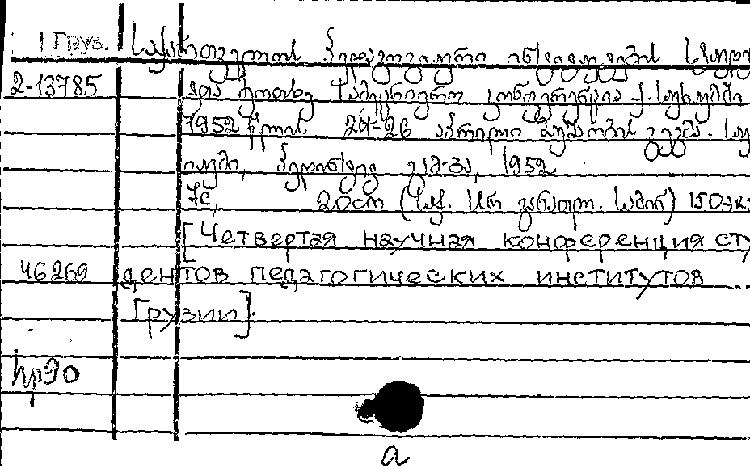 1 Груз. საქართველოს პედაგოგიური ინსტიტუტების სტუდე
2-13785 მეოთხე სამეცნიერო კონფერენცია ქ. სოხუმში
1952 წლის 24-26 აპრილი მუშაობის გეგმა. სო
ხუმი, 1952
7с, 20cm (საქ. სსრ განათლ. სამინ) 150
[Четвертая научная конференция сту
46269 дентов педагогических институтов
Грузии].
а